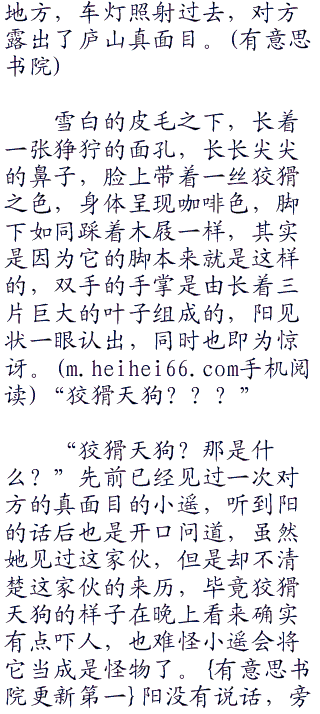 地方，车灯照射过去，对方
露出了庐山真面目。(有意思
书院)
雪白的皮毛之下，长着
一张狰狞的面孔，长长尖尖
的鼻子，脸上带着一丝狡猾
之色，身体呈现咖啡色，脚
下如同踩着木屐一样，其实
是因为它的脚本来就是这样
的，双手的手掌是由长着三
片巨大的叶子组成的，阳见
状一眼认出，同时也即为惊
讶。(m.heihei66.com手机阅
读)“狡猾天狗？？？”
“狡猾天狗？那是什
么？”先前已经见过一次对
方的真面目的小遥，听到阳
的话后也是开口问道，虽然
她见过这家伙，但是却不清
楚这家伙的来历，毕竟狡猾
天狗的样子在晚上看来确实
有点吓人，也难怪小遥会将
它当成是怪物了。{有意思书
院更新第一}阳没有说话，旁